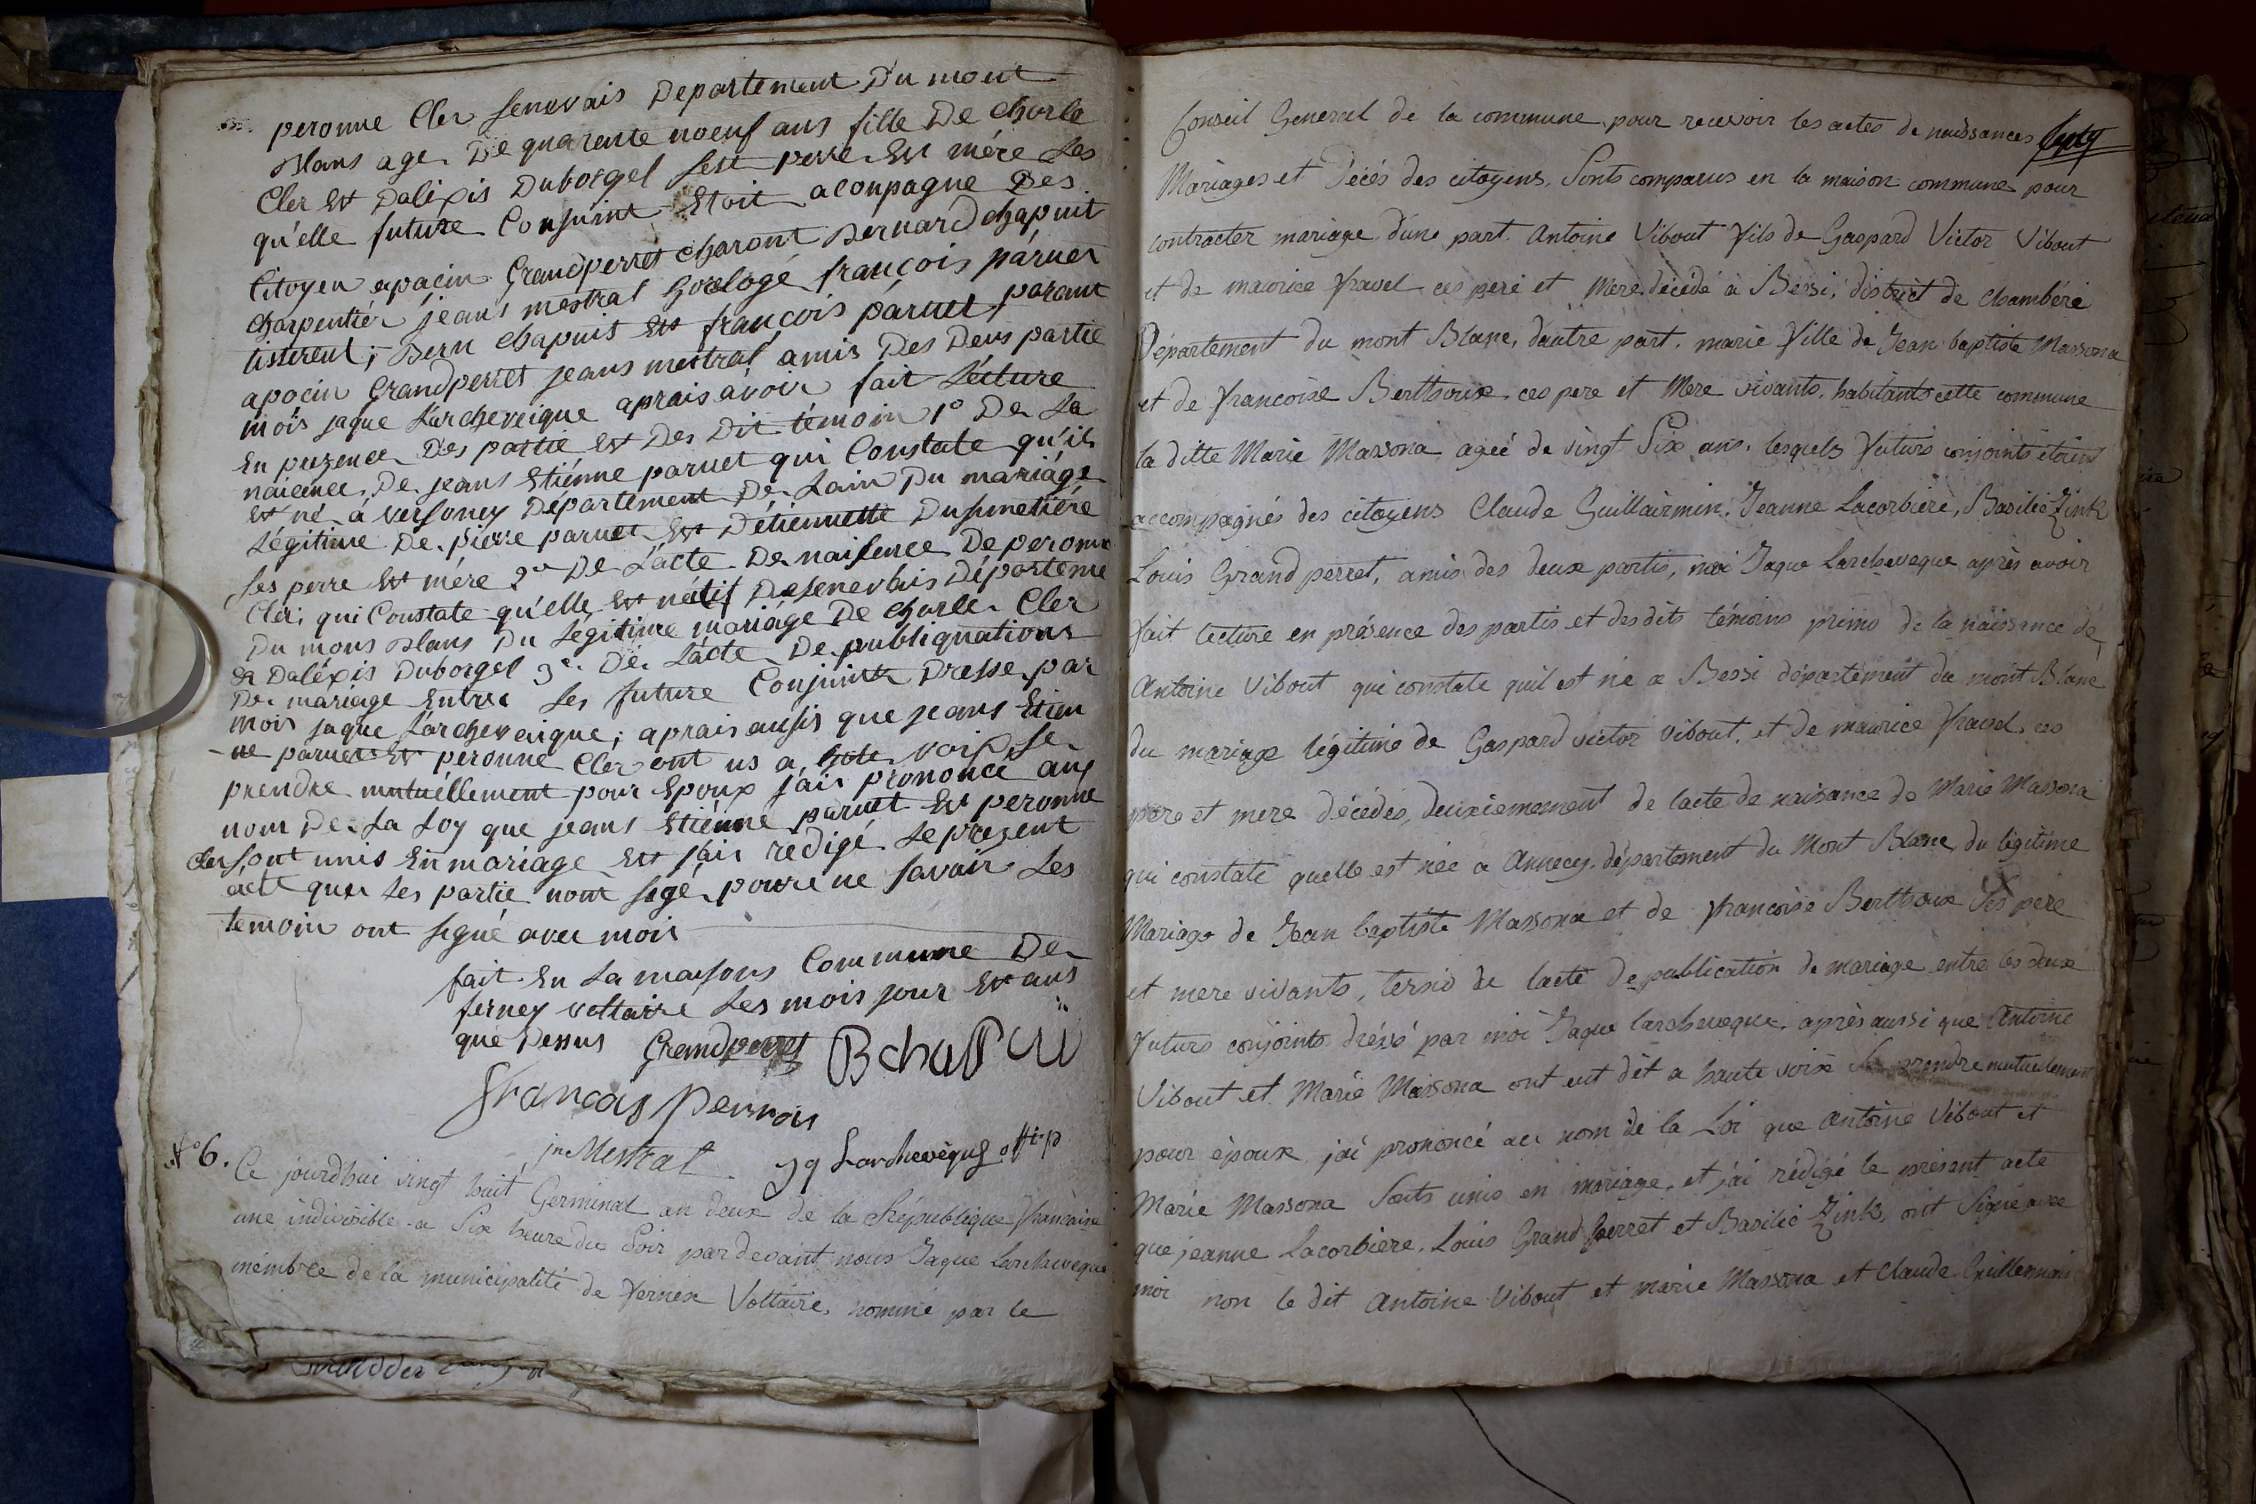 peronne Cler Senevais Departement Du mont
Blans age De quarente noeuf ans fille De charle
Cler Et Daléxis Duborgel sest perre Et mére Les
qu'elle future Conjúint Etoit acompagné Des
Citoyen apocin Grandperret charont Bernard chapuit
charpentiér jeans mestral horlogé françois páruet
tisserent; Bern chapuis Et françois páruet parant
apocin Grandperret jeans mestral amis Des Deus partie
móis jaque Larcheveique aprais avoir fait Lécture
En prezence Des partie Et Des Dit témoin 1° De La
naicence De jeans Etiénne paruet qui Constate qu'il
Et né á versoney Département De Lain Du mariáge
Légitime De pierre paruet Et Détiennette Dusimetiére
ses perre Et mére 2e De Lácte De naisence De peronne
Cler; qui Constate qu'elle Et nétif De senevais Départeme
Du mons Blans Du Légitime mariáge De charle Cler
Et Daléxis Duborgel 3e De Lácte De publiquations
De máriage Entre Les future Conjuints Dresse par
mois jaque Larcheveique; aprais ausis que jeans Etien
-ne paruet Et peronne Cler ont us a hote voix se
prendre mutuéllement pour Epoux jais prononcé aus
nom De La Loy que jeans Etiénne paruet Et peronne
cler sont unis En mariage Et jais redigé Le prezent
áctt que Les partie nont sigé pourre ne savoir Les
temoin ont signé avec mois
fait En La maisons Commune De
ferney voltairre Les mois jour Et ans
que Dessus Grandperret BchaPui
francois perrois
jn Mestral jq Larchevêque offi p
N° 6. Ce jourdhui vingt huit Germinal an deux de la République française
une indivisible a Six heure du Soir par devant nous Jaque Larcheveque
mémbre de la municipalité de fernex Voltaire, nommé par le
Conseil General de la commune pour recevoir les actes de naissances
Mariages et Décés des citoyens, Sonts comparus en la maison commune pour
contracter mariage d'une part. Antoine Vibout fils de Gaspard Victor Vibout
et de maurice fravel ces peré et Mere décédé à Bessi, district de Chambéré
Département du mont Blanc, dautre part. marie fille de Jean baptiste Massona
et de francoise Berthoux ces pere et Mere vivants, habitants cette commune
la ditte Marie Massona agée de vingt Six ans. lesquels futurs conjoints étoint
accompagnés des citoyens Claude Guillairmin, Jeanne Lacorbiere, Basilie Zink
Louis Grand perret, amis des deux partis, moi Jaque Larcheveque après avoir
fait lecture en présence des partis et des dits témoins primo de la naissance de
Antoine Vibout qui constate quil est né a Bessi département du mont Blanc
du mariage légitime de Gaspard victor vibout, et de maurice fravel ces
pere et mere décédés, deuxiemement de lacte de naisance de Marie Massona
qui constate quelle est née a Annecy département du Mont Blanc du legitime
Mariage de Jean baptiste Massona et de francoise Berthoux Ses pere
et mere vivants, tersio de lacte de publication de mariage entre les deux
futurs conjoints dréssé par moi Jaque larcheveque, après aussi que Antoine
Vibout et Marie Massona ont eut dit a haute voix Se prendre mutuelement
pour époux jai prononcé au nom de la Loi que Antoine Vibout et
Marie Massona Sonts unis en mariage, et j'ai rédigé le présent acte
que jeanne Lacorbiere, Louis Grand perret et Basilie Zink, ont Signé avec
moi non le dit Antoine Vibout et marie Massona et Claude Guillermain